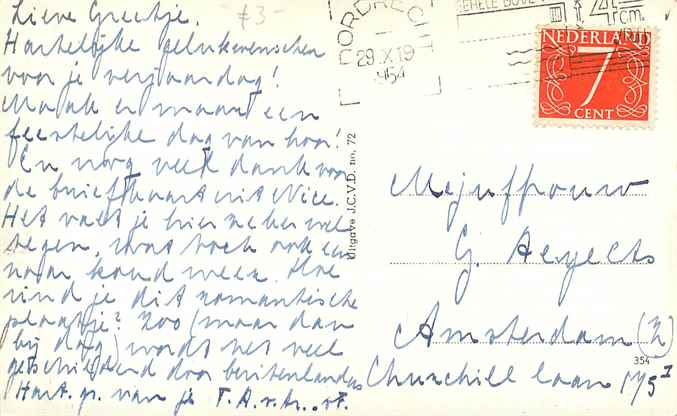 Lieve Greetje.
Hartelijke gelukwenschen
voor je verjaardag!
Maak er maar een
feestelijke dag van hoor!
En nog veel dank voor
de briefkaart uit Nice.
Het valt je hier zeker wel
tegen, want toch ook een
naar koud weer. Hoe
vind je dit romantische
plaatje? Zoo (maar dan
bij dag) wordt het veel
geschilderd door buitenlanders
Hart. gr. van je
£3-
DORDRECHT
29.X.19
1954
GEHELE
cm.
NEDERLAND
7
CENT
Uitgave J.C.V.D. no. 72
Mejuffrouw
G.
Amsterdam (Z)
354
Churchill laan 175 I